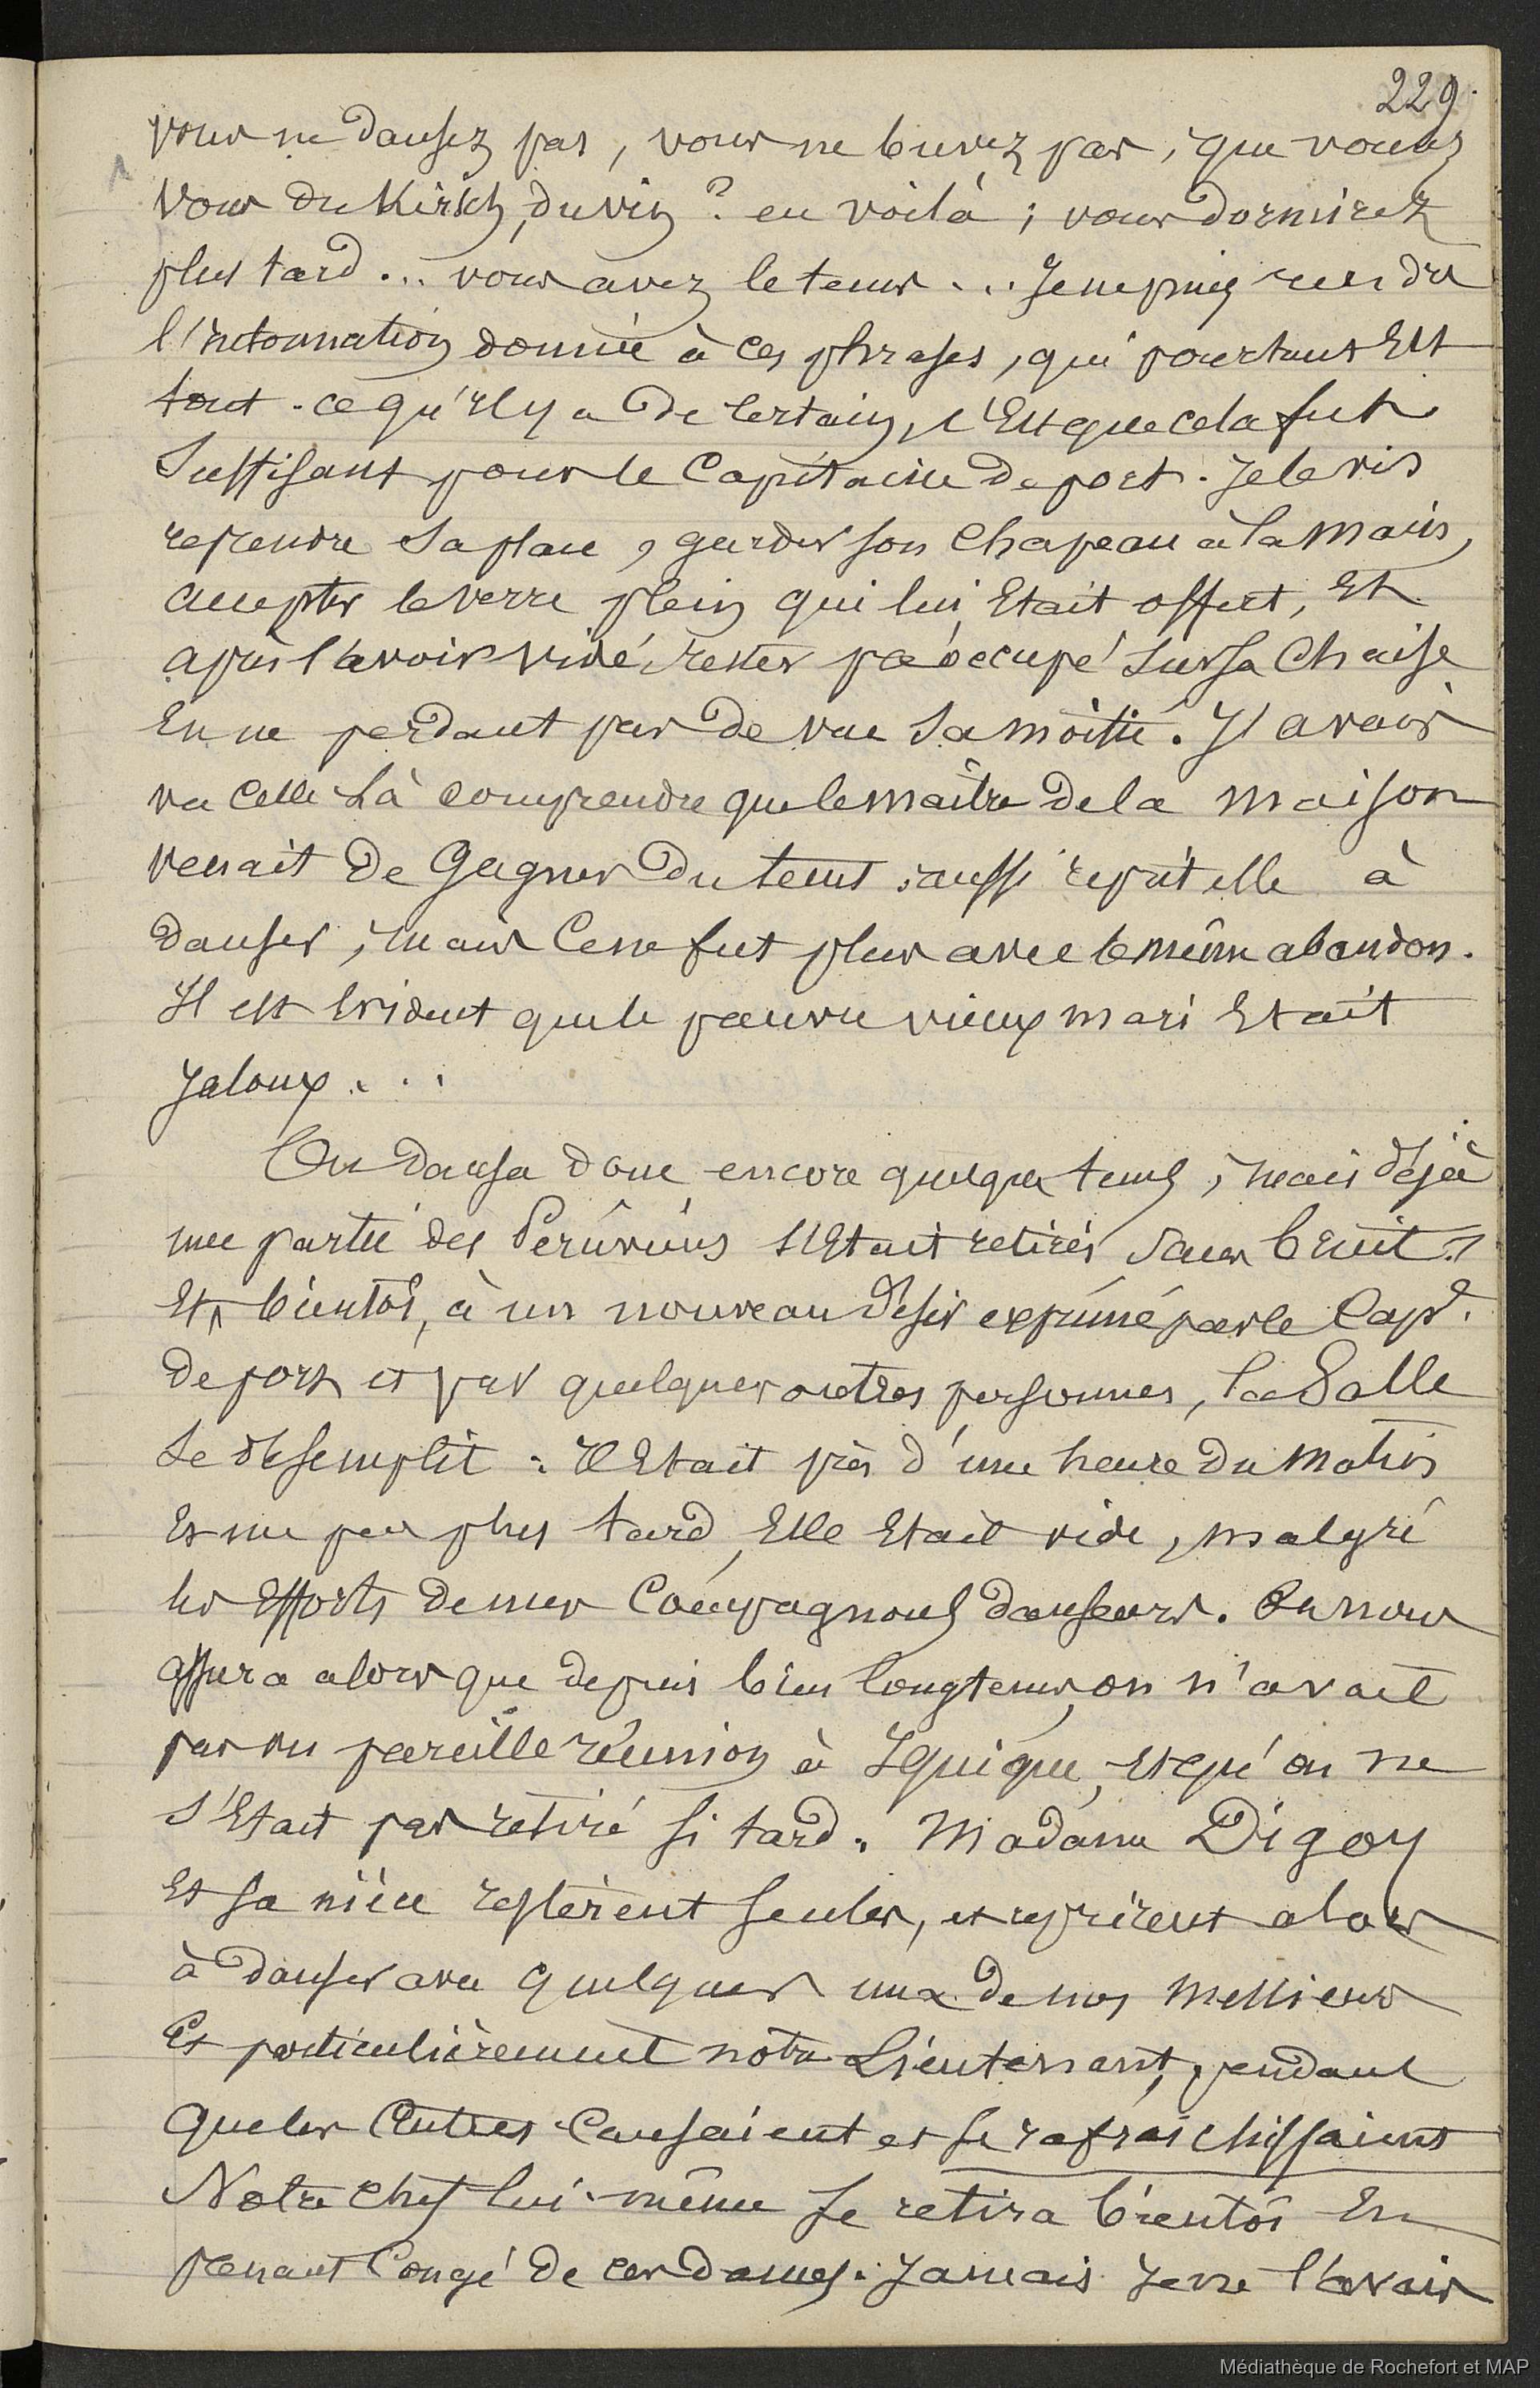 229.
vous ne dansez pas, vous ne buvez pas, que voulez
vous du Kirsch, du vin ? en voilà ; vous dormirez
plus tard... vous avez le tems... Je ne puis rendre
l'intonnation donnée à ces phrases, qui pourtant Est
tout. ce qu'il y a de Certain, c'Est que cela fut
Suffisant pour le Capitaine de port. Je le vis
reprendre sa place, garder son Chapeau à la main,
accepter le verre plein qui lui Etait offert, Et
après l'avoir vidé, rester préoccupé sur sa Chaise
En ne perdant pas de vue sa moitié. J'avais
vu celle là comprendre que le maître de la maison
venait de Gagner du tems ; aussi reprit elle à
danser, mais Ce ne fut plus avec le même abandon.
Il est Evident que le pauvre vieux mari Etait
Jaloux...
On dansa donc encore quelque tems, mais déjà
une partie des Péruviens s'Etait retirés sans bruit.
Et bientôt, à un nouveau désir exprimé par le Capne.
de port et par quelques autres personnes, la Salle
se désemplit : Il Etait près d'une heure du matin
Et un peu plus tard, Elle Etait vide, malgré
les Efforts de mes Compagnons danseurs. On nous
assura alors que depuis bien longtems, on n'avait
pas vu pareille réunion à Iquique, et qu'on ne
s'Etait pas retiré si tard. Madame Digoy
Et sa nièce restèrent seules, et reprirent alors
à danser avec quelques uns de nos messieurs
Et particulièrement notre Lieutenant, pendant
que les Autres Causaient et se rafraîchissaient
Notre chef lui-même se retira bientôt En
prenant Congé de ces dames. Jamais Je ne l'avais
Médiathèque de Rochefort et MAP